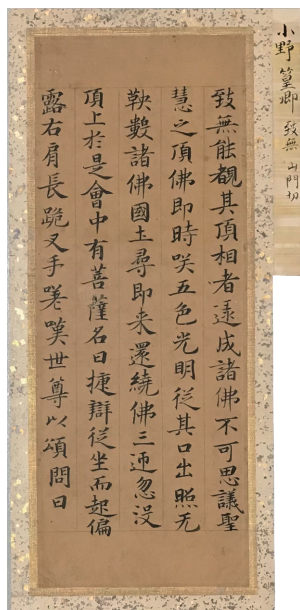 小野篁卿 致無 山門切
致無能覩其頂相者逮成諸佛不可思議聖
慧之頂佛即時咲五色光明從其口出照无
鞅數諸佛國土尋即来還繞佛三迊忽没
頂上於是會中有菩薩名曰捷辯從坐而起偏
露右肩長跪叉手嗟嘆世尊以頌問曰